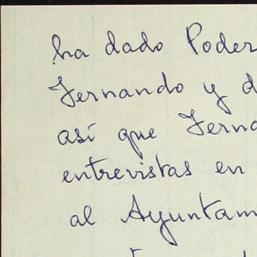 ha dado Poder
Fernando y d
así que Ferna
entrevistas en
al Ayuntam